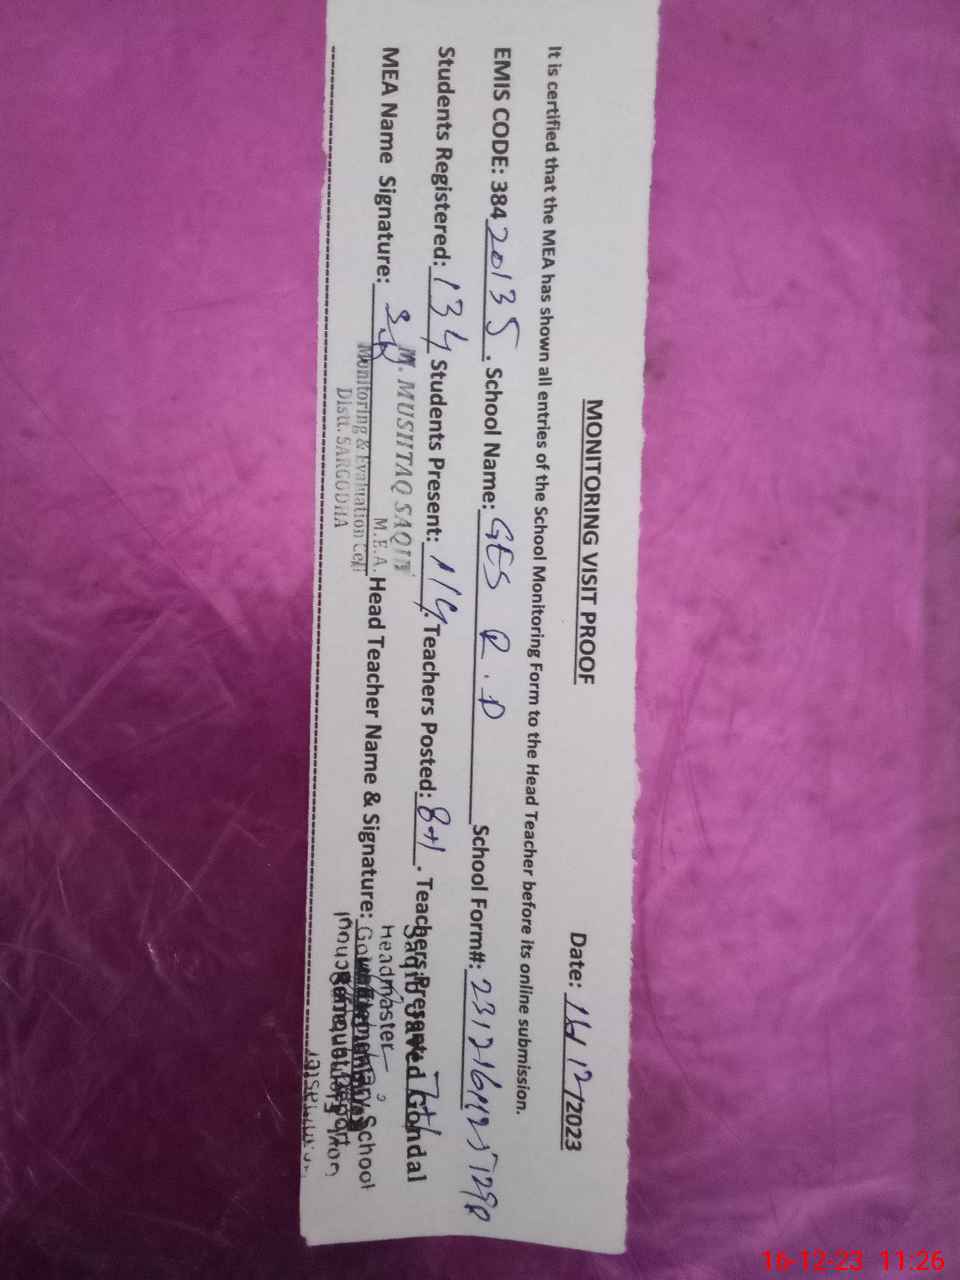 MONITORING VISIT PROOF
Date: 16/12/2023
It is certified that the MEA has shown all entries of the School Monitoring Form to the Head Teacher before its online submission.
EMIS CODE: 38420135. School Name: GES R.D School Form#:
Students Registered: 134 Students Present: 119. Teachers Posted: 8+1. Teachers Present: 7+1
MEA Name Signature: Head Teacher Name & Signature:
M. MUSHTAQ SAQIB
M.E.A.
Monitoring & Evaluation Cell
Distt. SARGODHA
Saqib Javed Gondal
Headmaster
Govt. Elementary School
16-12-23 11:26